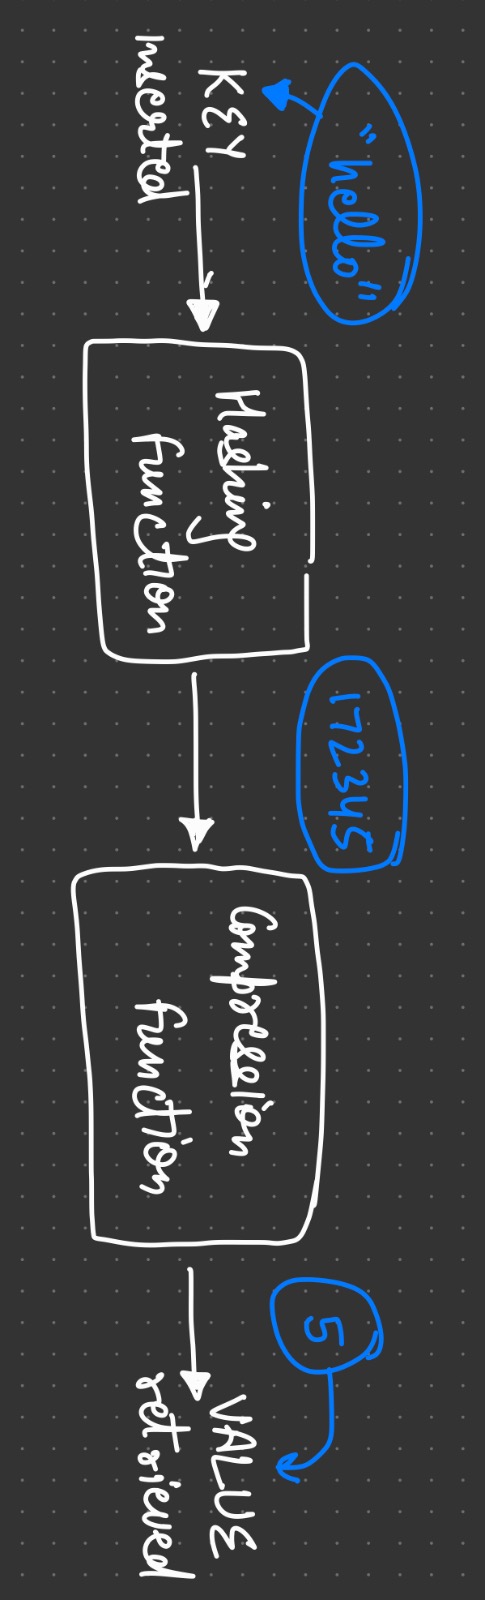 "hello"
172345
5
KEY
inserted
Hashing
function
Compression
function
VALUE
retrieved